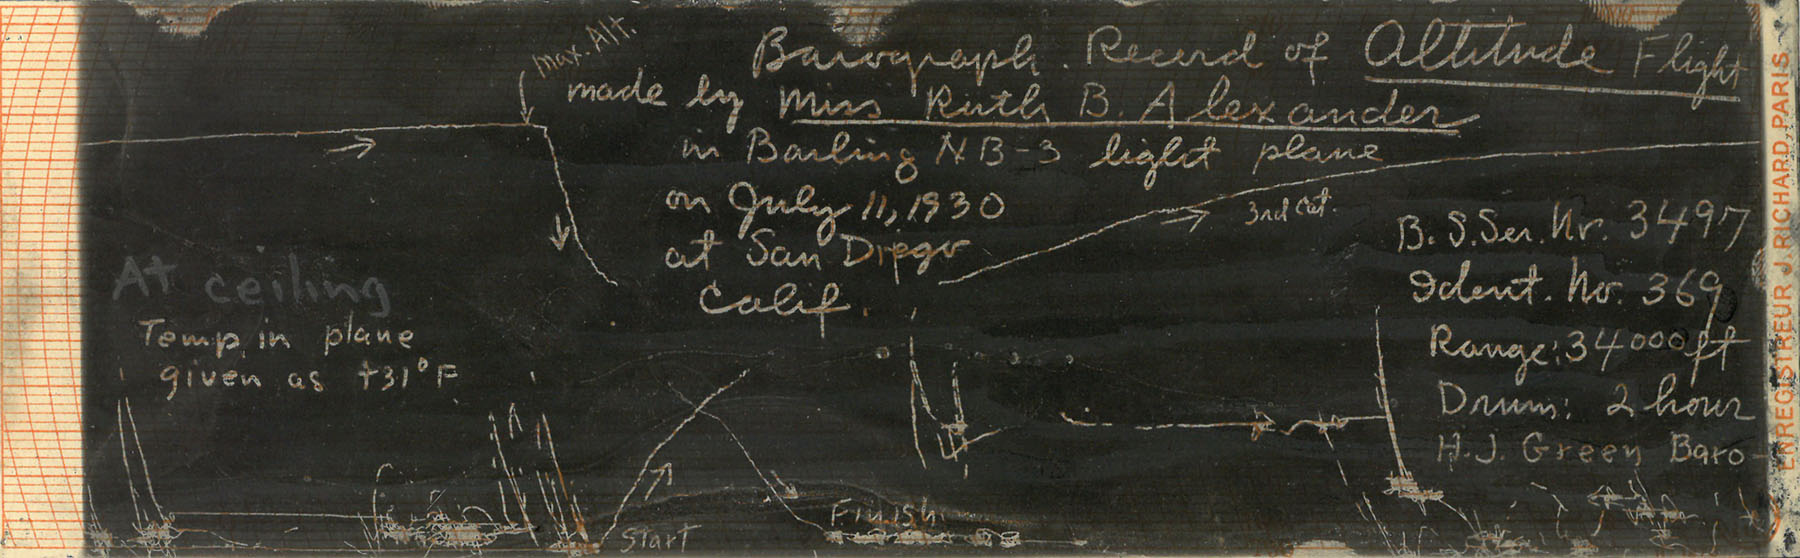 Max. Alt.
Barograph. Record of Altitude Flight
made by Miss Ruth B. Alexander
in Barling NB-3 light plane
on July 11, 1930
at San Diego
Calif.
3rd
B. S. Ser. Nr. 3497
Ident. No. 369
Range: 34000 ft
Drum: 2 hour
H. J. Green Baro-
At ceiling
Temp. in plane
given as +31°F
Start
Finish
ENREGISTREUR J. RICHARD. PARIS